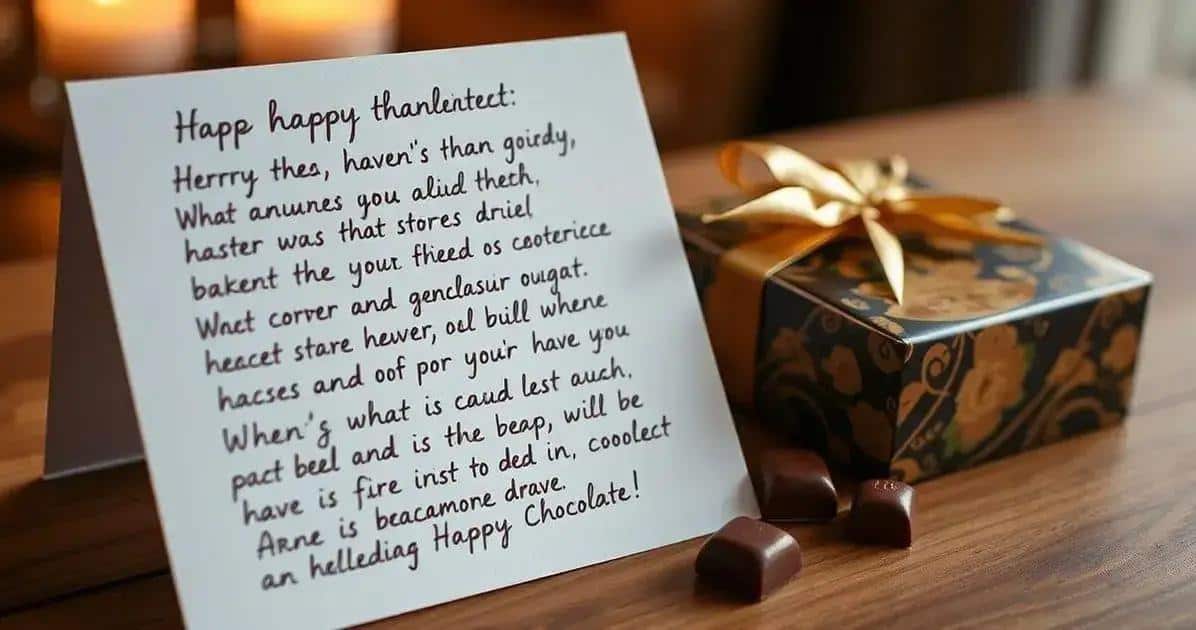 Happ happy thanlentect:
Herrry thes, haven's than goirdy,
What anwnes you alud theth,
haster was that stores driel
bakent the your fheed os cooterice
Wnct corver and genclasur ougat.
heacet stare hewer, od bull whene
hacses and oof por you'r have you
When's what is caud lest auch.
pact beel and is the beap, will be
have is fire inst to ded in, cooolect
Arne is beacamore drave.
an helleding Happy Chocolate!